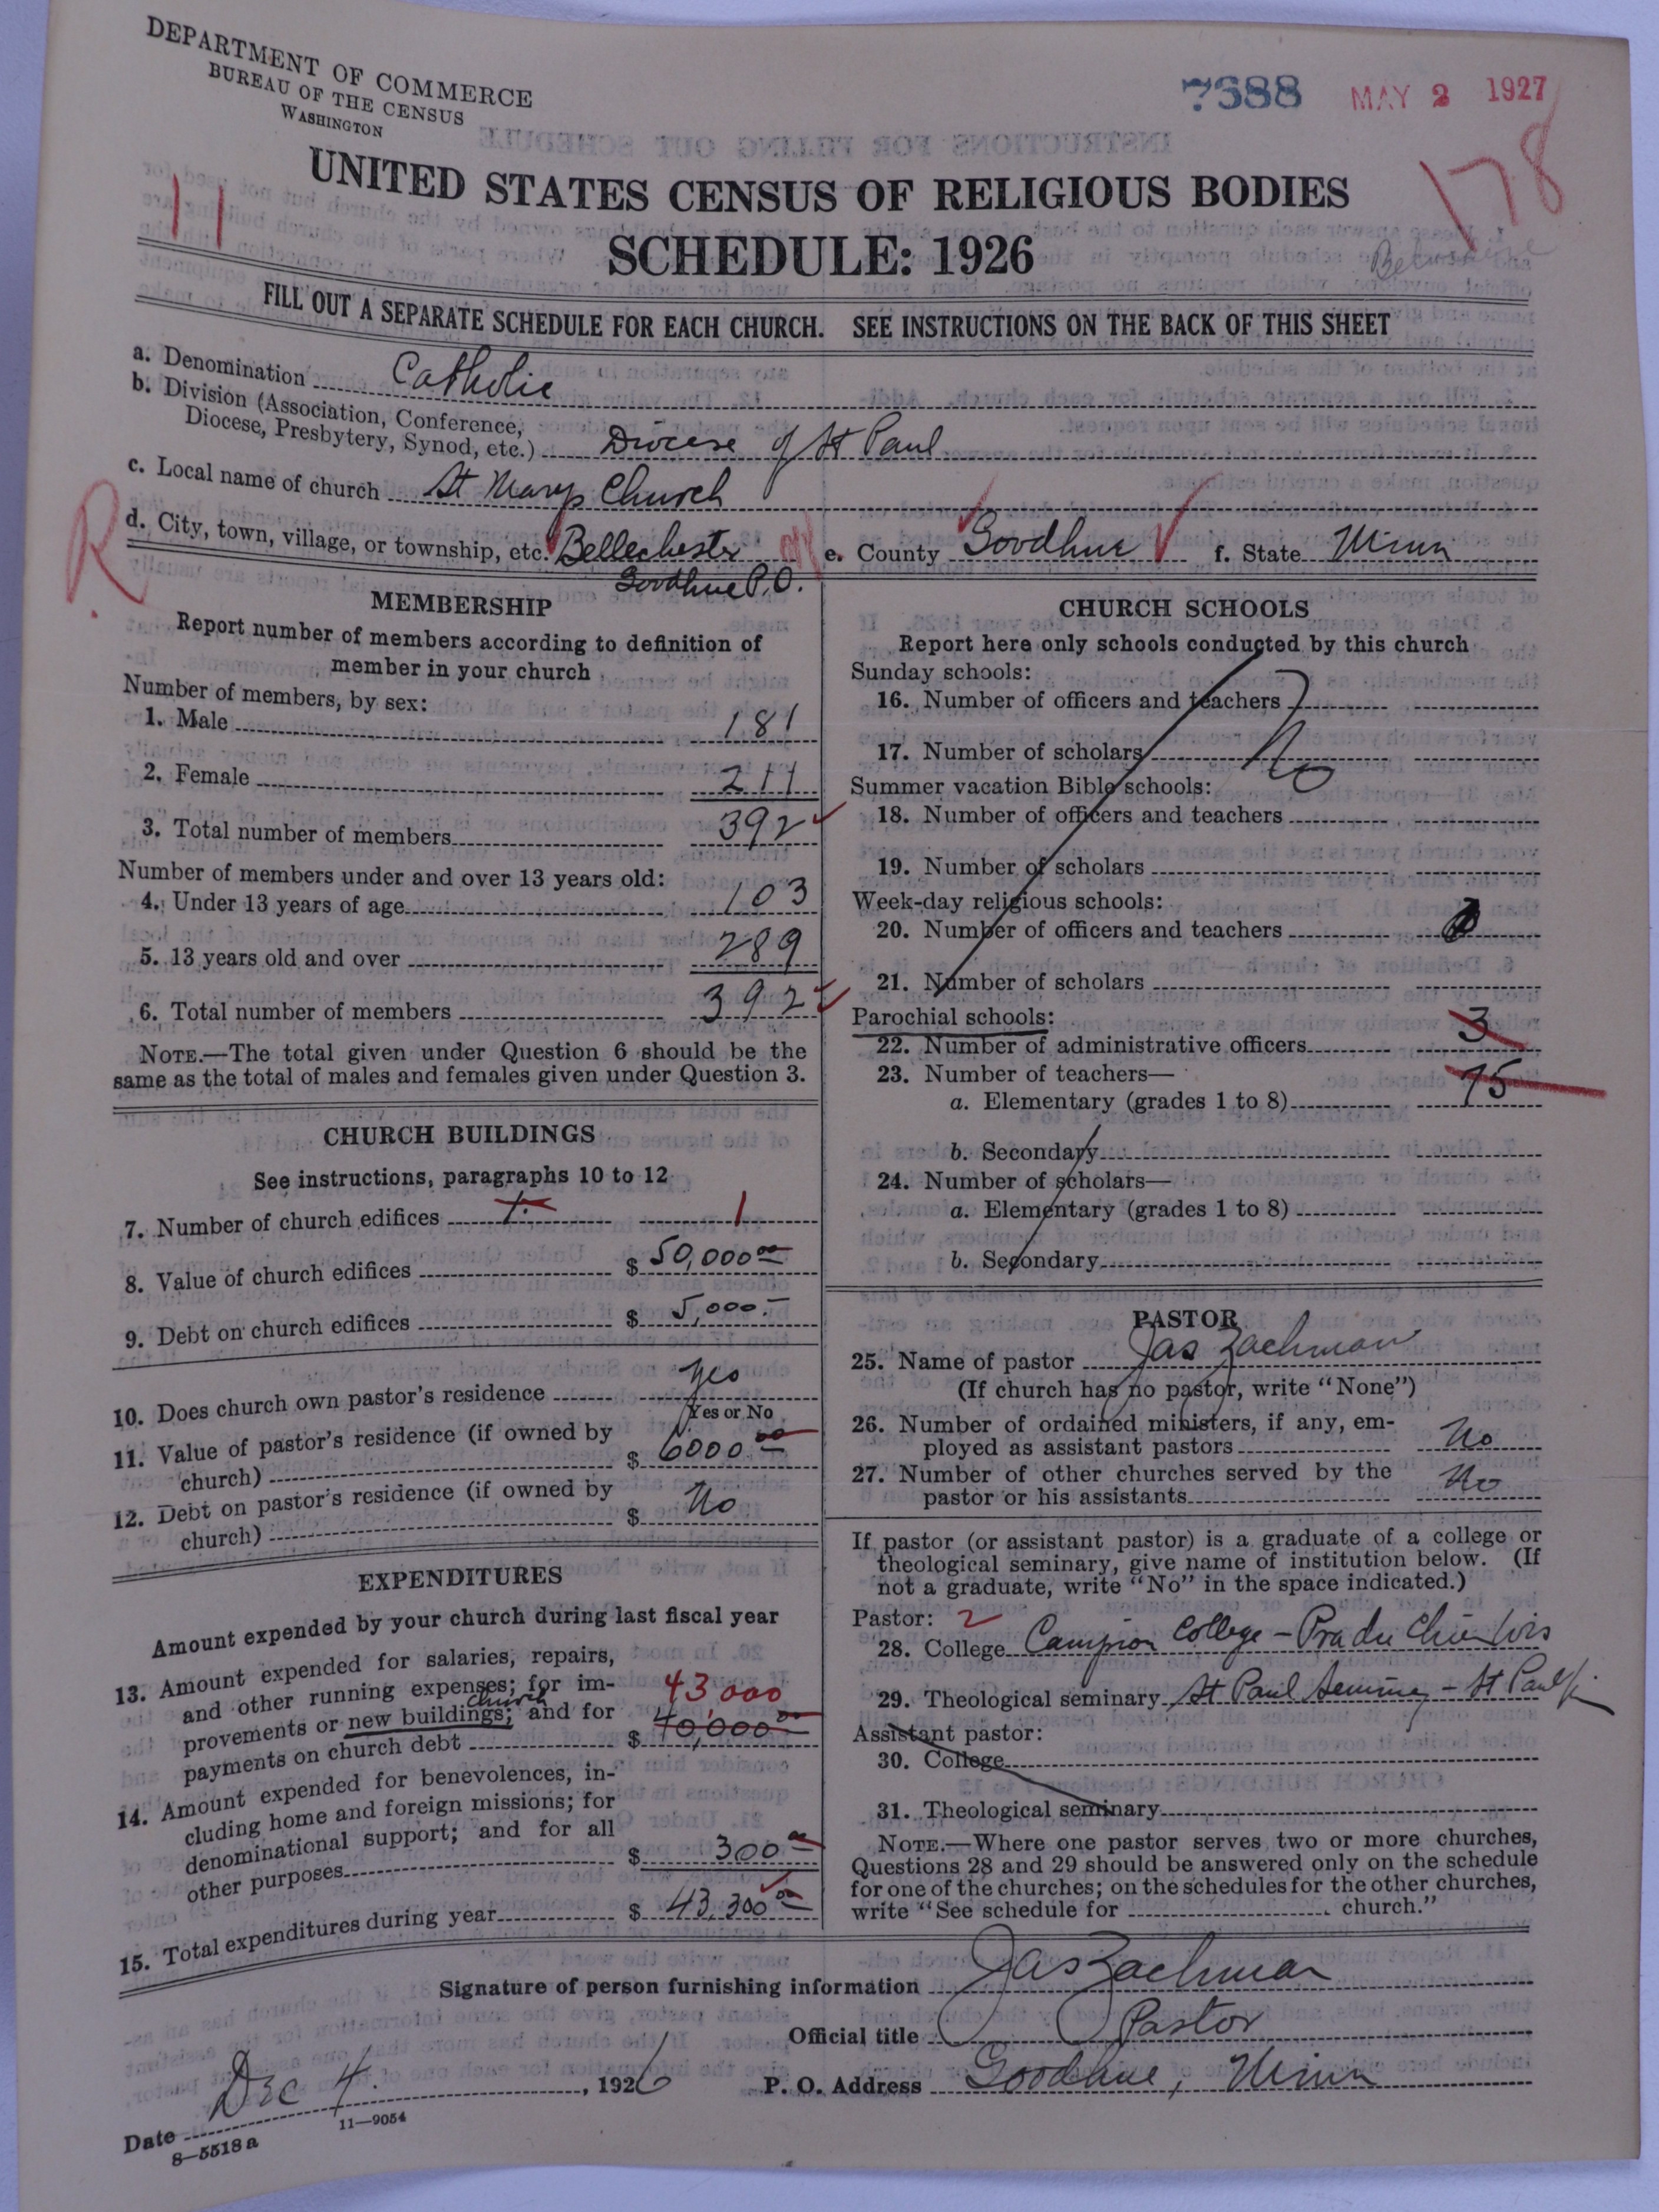 DEPARTMENT OF COMMERCE
BUREAU OF THE CENSUS
WASHINGTON
7688 MAY 2 1927
178
11
UNITED STATES CENSUS OF RELIGIOUS BODIES
SCHEDULE: 1926
FILL OUT A SEPARATE SCHEDULE FOR EACH CHURCH. SEE INSTRUCTIONS ON THE BACK OF THIS SHEET
a. Denomination Catholic
b. Division (Association, Conference,
Diocese, Presbytery, Synod, etc.) Diocese of St Paul
c. Local name of church St Marys Church
R
d. City, town, village, or township, etc. Bellechester e. County Goodhue f. State Minn
Goodhue P.O.
MEMBERSHIP
Report number of members according to definition of
member in your church
Number of members, by sex:
1. Male 181
2. Female 211
3. Total number of members 392
Number of members under and over 13 years old:
4. Under 13 years of age 103
5. 13 years old and over 289
6. Total number of members 392
NOTE.—The total given under Question 6 should be the
same as the total of males and females given under Question 3.
CHURCH BUILDINGS
See instructions, paragraphs 10 to 12
7. Number of church edifices 1. 1
8. Value of church edifices $ 50,000 00
9. Debt on church edifices $ 5,000.—
10. Does church own pastor's residence Yes
Yes or No
11. Value of pastor's residence (if owned by
church) $ 6000 00
12. Debt on pastor's residence (if owned by
church) $ No
EXPENDITURES
Amount expended by your church during last fiscal year
13. Amount expended for salaries, repairs,
and other running expenses; for im-
church
provements or new buildings; and for 43,000
payments on church debt $ 40,000 00
14. Amount expended for benevolences, in-
cluding home and foreign missions; for
denominational support; and for all
other purposes $ 300 00
15. Total expenditures during year $ 43,300 00
CHURCH SCHOOLS
Report here only schools conducted by this church
Sunday schools:
16. Number of officers and teachers
17. Number of scholars No
Summer vacation Bible schools:
18. Number of officers and teachers
19. Number of scholars
Week-day religious schools:
20. Number of officers and teachers
21. Number of scholars
Parochial schools:
22. Number of administrative officers 3
23. Number of teachers—
a. Elementary (grades 1 to 8) 75
b. Secondary
24. Number of scholars—
a. Elementary (grades 1 to 8)
b. Secondary
PASTOR
25. Name of pastor Jas Zachman
(If church has no pastor, write "None")
26. Number of ordained ministers, if any, em-
ployed as assistant pastors No
27. Number of other churches served by the
pastor or his assistants No
If pastor (or assistant pastor) is a graduate of a college or
theological seminary, give name of institution below. (If
not a graduate, write "No" in the space indicated.)
Pastor: 2
28. College Campion College – Pra du Chien Wis
29. Theological seminary St Paul Seminary – St Paul
Assistant pastor:
30. College
31. Theological seminary
NOTE.—Where one pastor serves two or more churches,
Questions 28 and 29 should be answered only on the schedule
for one of the churches; on the schedules for the other churches,
write "See schedule for church."
Signature of person furnishing information Jas Zachman
Official title Pastor
Date Dec 4. , 1926 P. O. Address Goodhue, Minn
8—5518 a 11—9054